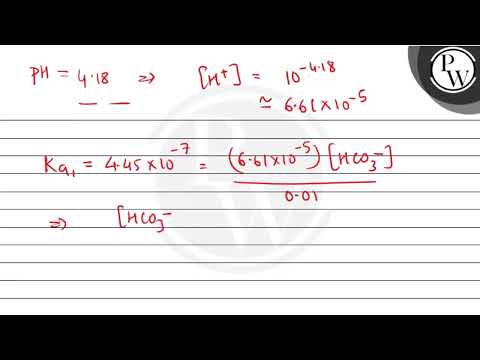 PW
pH = 4.18 ⇒ [H⁺] = 10^-4.18
≃ 6.61×10^-5
Ka₁ = 4.45×10^-7 = (6.61×10^-5) [HCO₃⁻] / 0.01
⇒ [HCO₃⁻